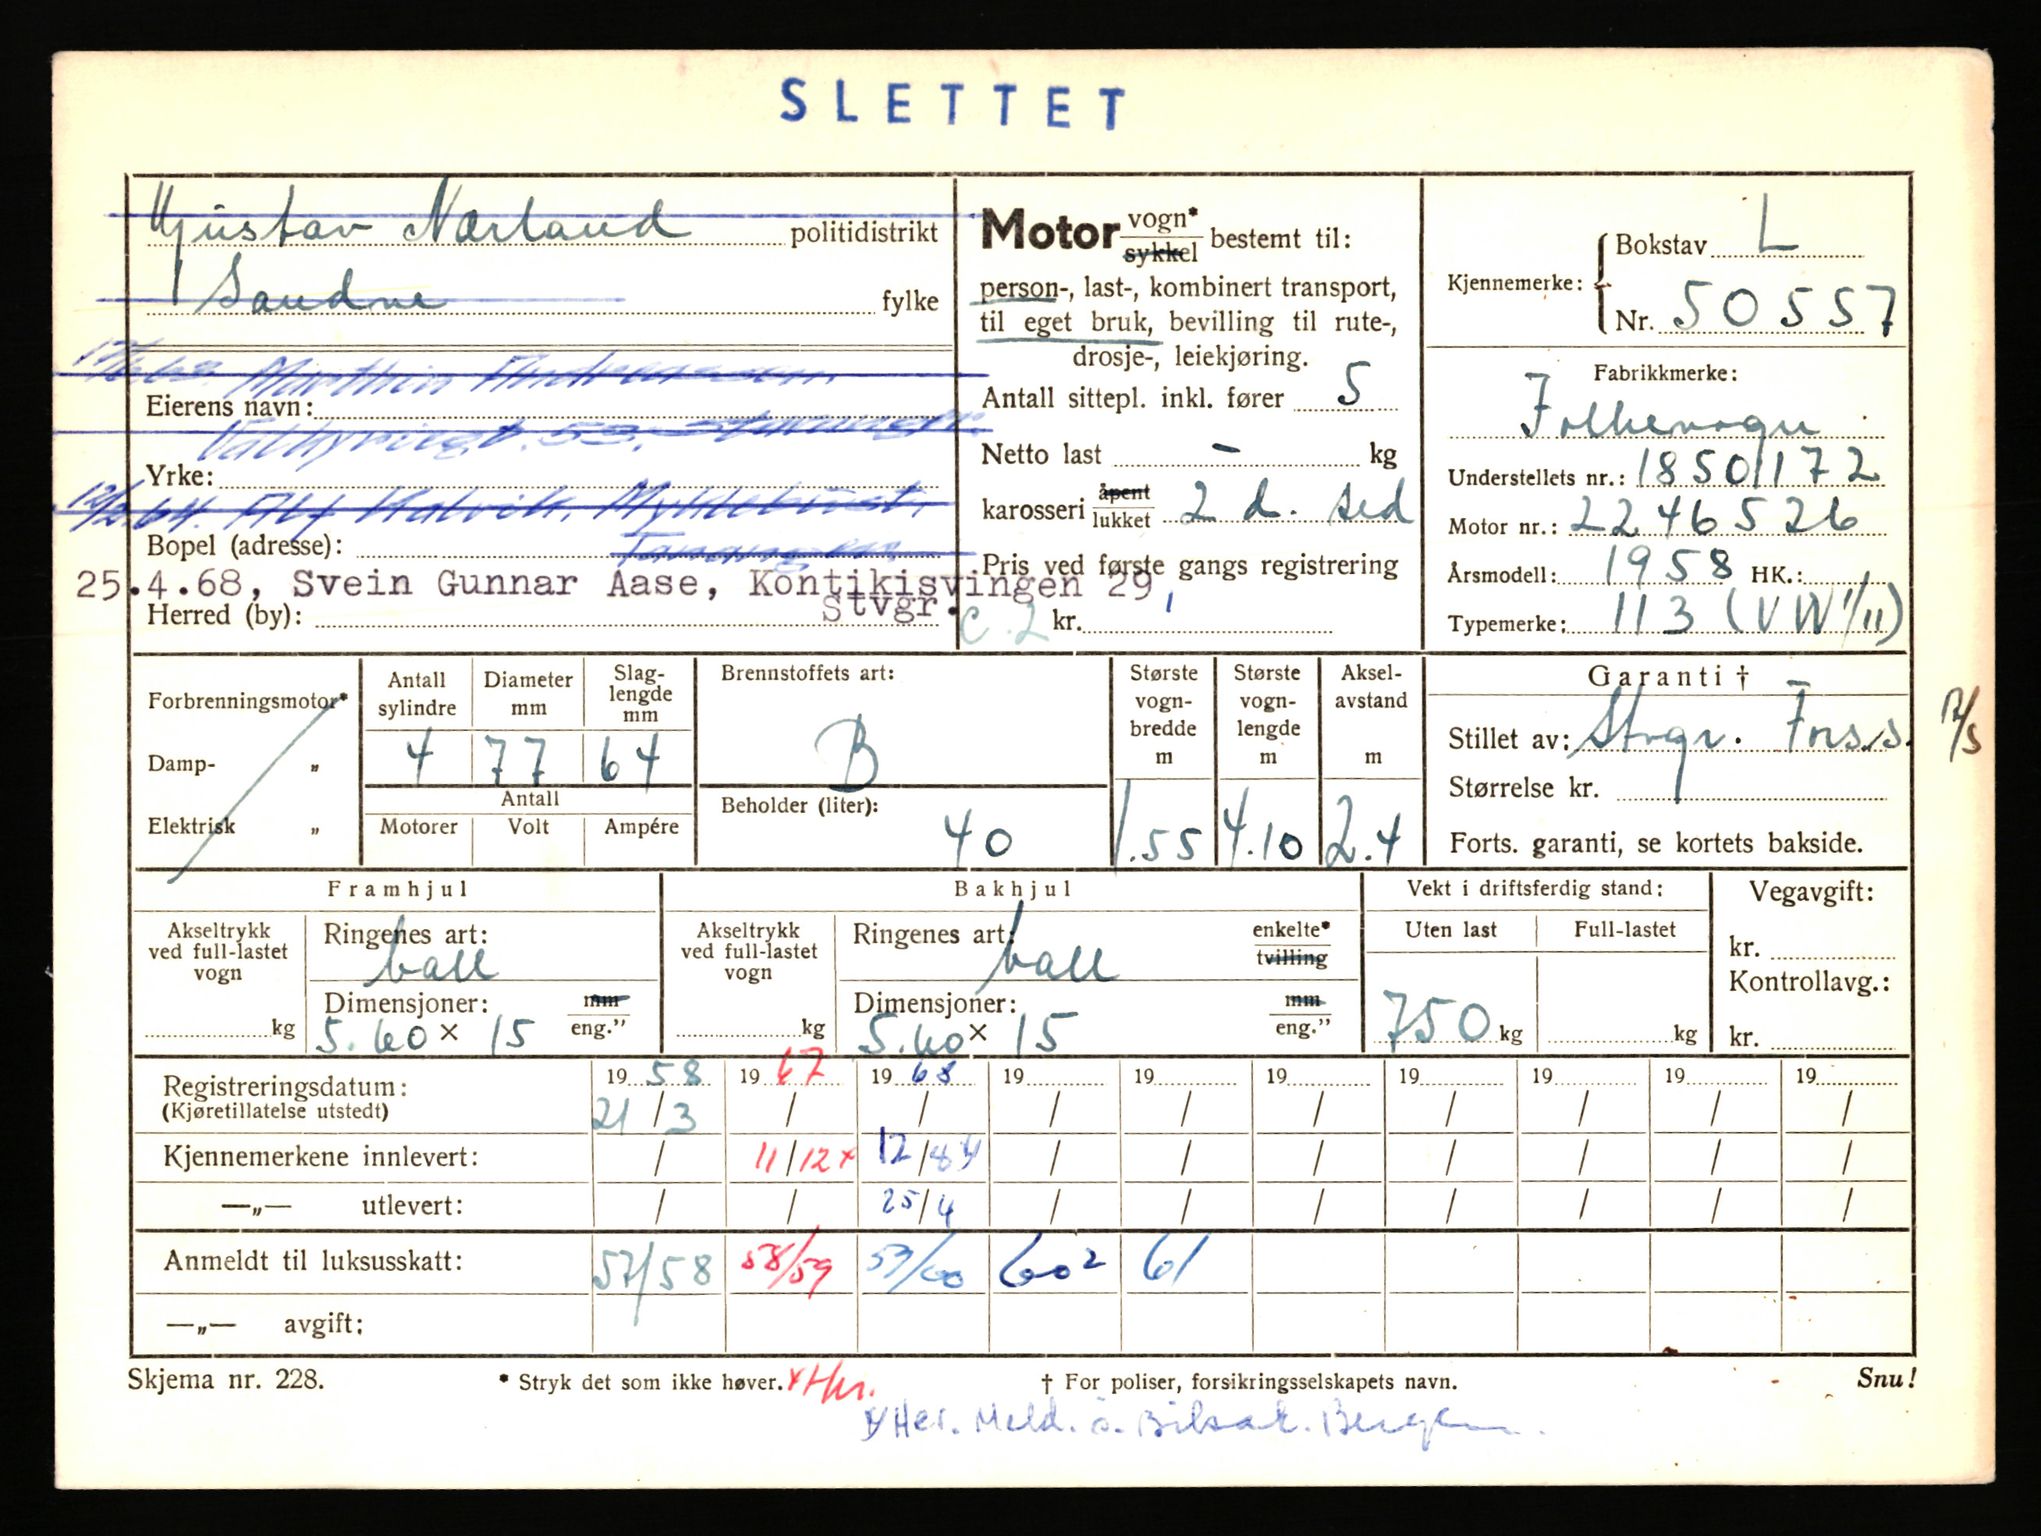 SLETTET
Gustav Nærland politidistrikt
Sandne fylke
Marthin Andreassen
Eierens navn:
Yrke:
Alf Kalvik, Myklebust,
Bopel (adresse): Tananger
25.4.68, Svein Gunnar Aase, Kontikisvingen 29
Stvgr.
Herred (by):
Motor vogn* sykkel bestemt til:
person-, last-, kombinert transport,
til eget bruk, bevilling til rute-,
drosje-, leiekjøring.
Antall sittepl. inkl. fører 5
Netto last - kg
karosseri åpent lukket 2 d. sed
Pris ved første gangs registrering
kr.
Kjennemerke: Bokstav L
Nr. 50557
Fabrikkmerke:
Folkevogn
Understellets nr.: 1850172
Motor nr.: 2246526
Årsmodell: 1958 HK.:
Typemerke: 113 (VW 1/11)
Forbrenningsmotor*
Damp- „
Elektrisk „
Antall sylindre 4
Diameter mm 77
Slaglengde mm 64
Antall
Motorer Volt Ampére
Brennstoffets art:
B
Beholder (liter):
40
Største vogn- bredde m 1.55
Største vogn- lengde m 4.10
Aksel- avstand m 2.4
Garanti †
Stillet av: Stvgr. Forss.
Størrelse kr.
Forts. garanti, se kortets bakside.
Framhjul
Akseltrykk ved full-lastet vogn
kg
Ringenes art:
ball
Dimensjoner: mm eng."
5.60 × 15
Bakhjul
Akseltrykk ved full-lastet vogn
kg
Ringenes art: enkelte* tvilling
ball
Dimensjoner: mm eng."
5.60 × 15
Vekt i driftsferdig stand:
Uten last Full-lastet
750 kg kg
Vegavgift:
kr.
Kontrollavg.:
kr.
Registreringsdatum: 19 58 19 67 19 68 19 19 19 19 19 19 19
(Kjøretillatelse utstedt) 21/3 / / / / / / / / /
Kjennemerkene innlevert: / 11/12 x 12/ / / / / / / /
—„— utlevert: / / 25/4 / / / / / / /
Anmeldt til luksusskatt: 57/58 58/59 59/60 60² 61
—„— avgift:
Skjema nr. 228.
* Stryk det som ikke høver.
† For poliser, forsikringsselskapets navn.
Snu!
Her. Meld. Bilsak. Bergen.